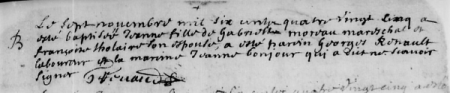 Le sept novembre mil six cents quatre vingt cinq a
B este baptisée Jeanne fille de Gabriel moreau mareschal et
françoise tholaire son espouse, a esté parein Georges Renault
laboureur et la marine Jeanne bonjour qui a dict ne scavoir
signer